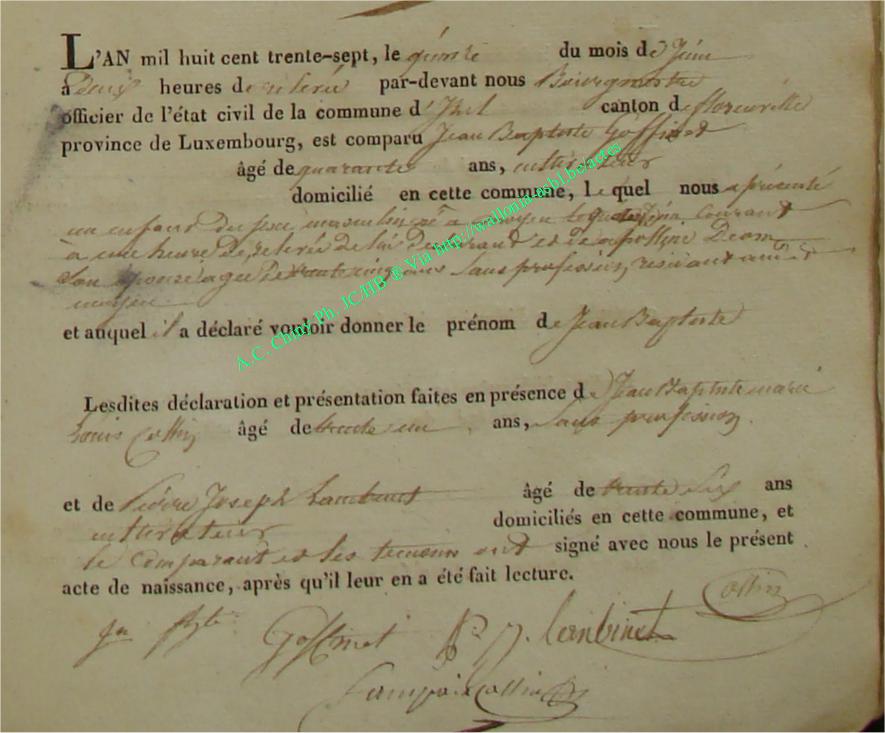 L'AN mil huit cent trente-sept, le quinze du mois de Juin
a deux heures de relevée par-devant nous Bourgmestre
officier de l'état civil de la commune d'Izel canton de florenville
province de Luxembourg, est comparu Jean Baptiste Goffinet
âgé de quarante ans, cultivateur
domicilié en cette commune, lequel nous a présenté
un enfant du sexe masculin né à moyen le Juin courant
à une heure de relevée de lui Declarant et de apolline Deom
Son épouse agée de trente cinq ans Sans profession, residant audit
moyen
et auquel il a déclaré vouloir donner le prénom de Jean Baptiste
Lesdites déclaration et présentation faites en présence de Jean Baptiste marie
Louis Collin âgé de trente un ans, Sans profession
et de Pierre Joseph Lambinet âgé de trente Six ans
cultivateur domiciliés en cette commune, et
le Comparant et les temoins ont signé avec nous le présent
acte de naissance, après qu'il leur en a été fait lecture.
Collin
Jn Bte Goffinet P. J. Lambinet
Collin
A.C. Chiny Ph. JC.HB ® Via http://wallonia-asbl.be/actes